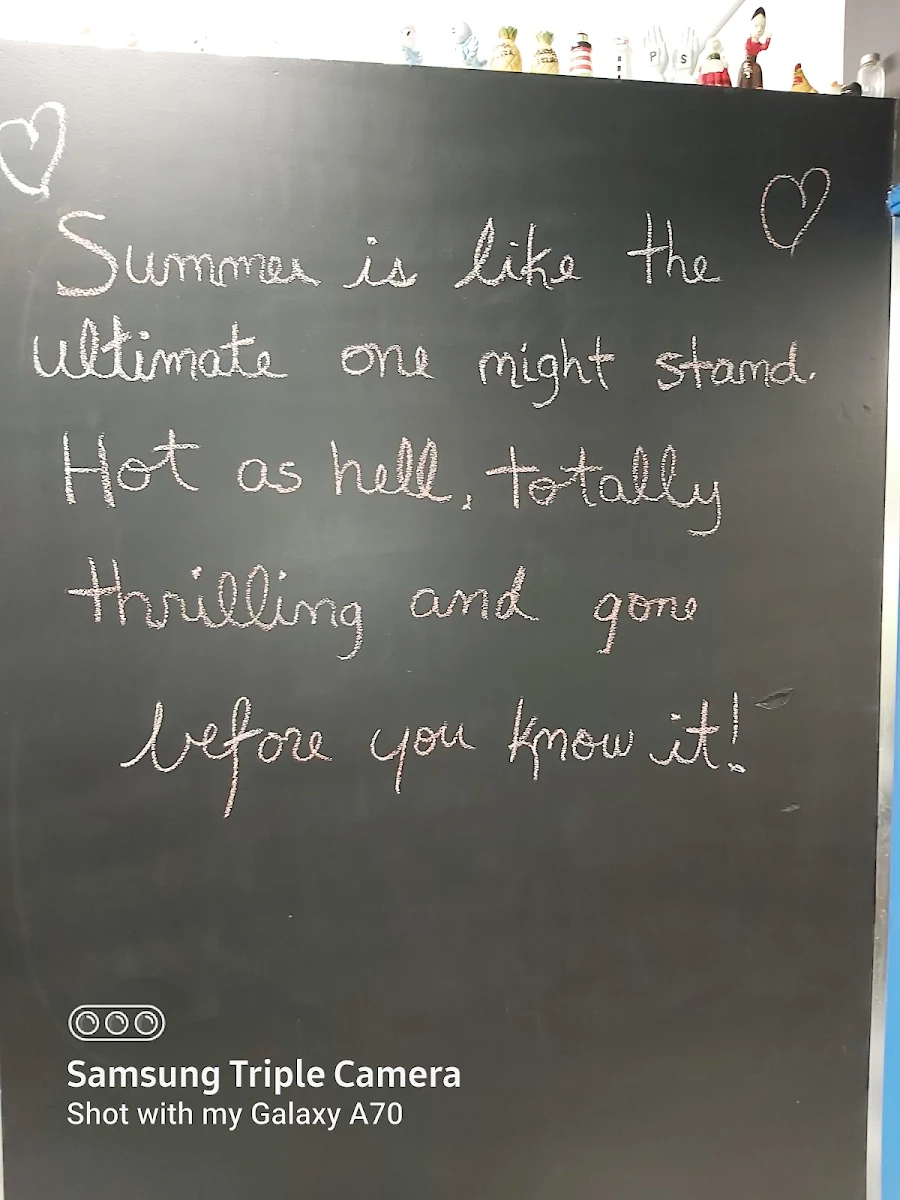 P S
Summer is like the
ultimate one might stand.
Hot as hell, totally
thrilling and gone
before you know it!
Samsung Triple Camera
Shot with my Galaxy A70